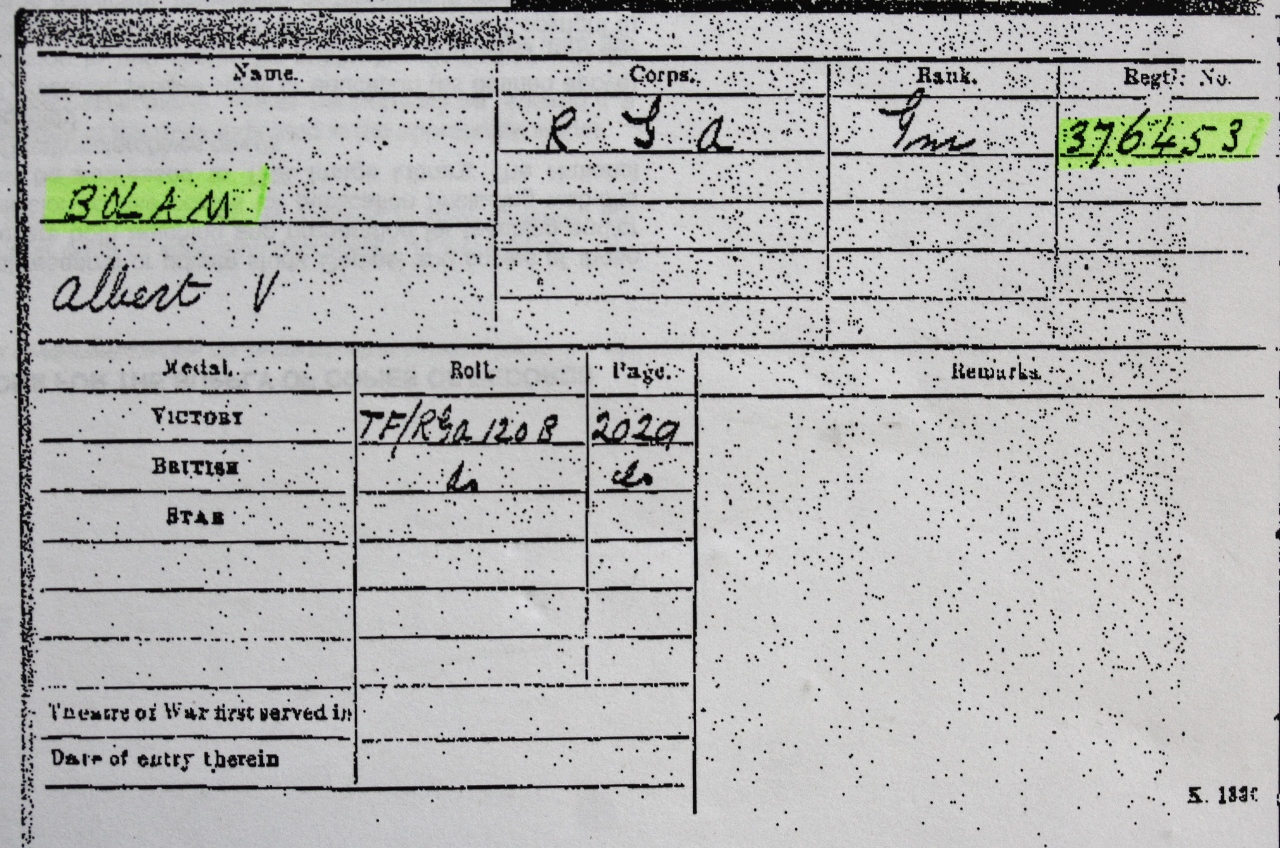 Name. Corps. Rank. Regtl. No.
R G A Gnr 376453
BOLAM
Albert V
Medal. Roll. Page. Remarks.
VICTORY TF/RGA 120 B 2029
BRITISH do do
STAR
Theatre of War first served in
Date of entry therein